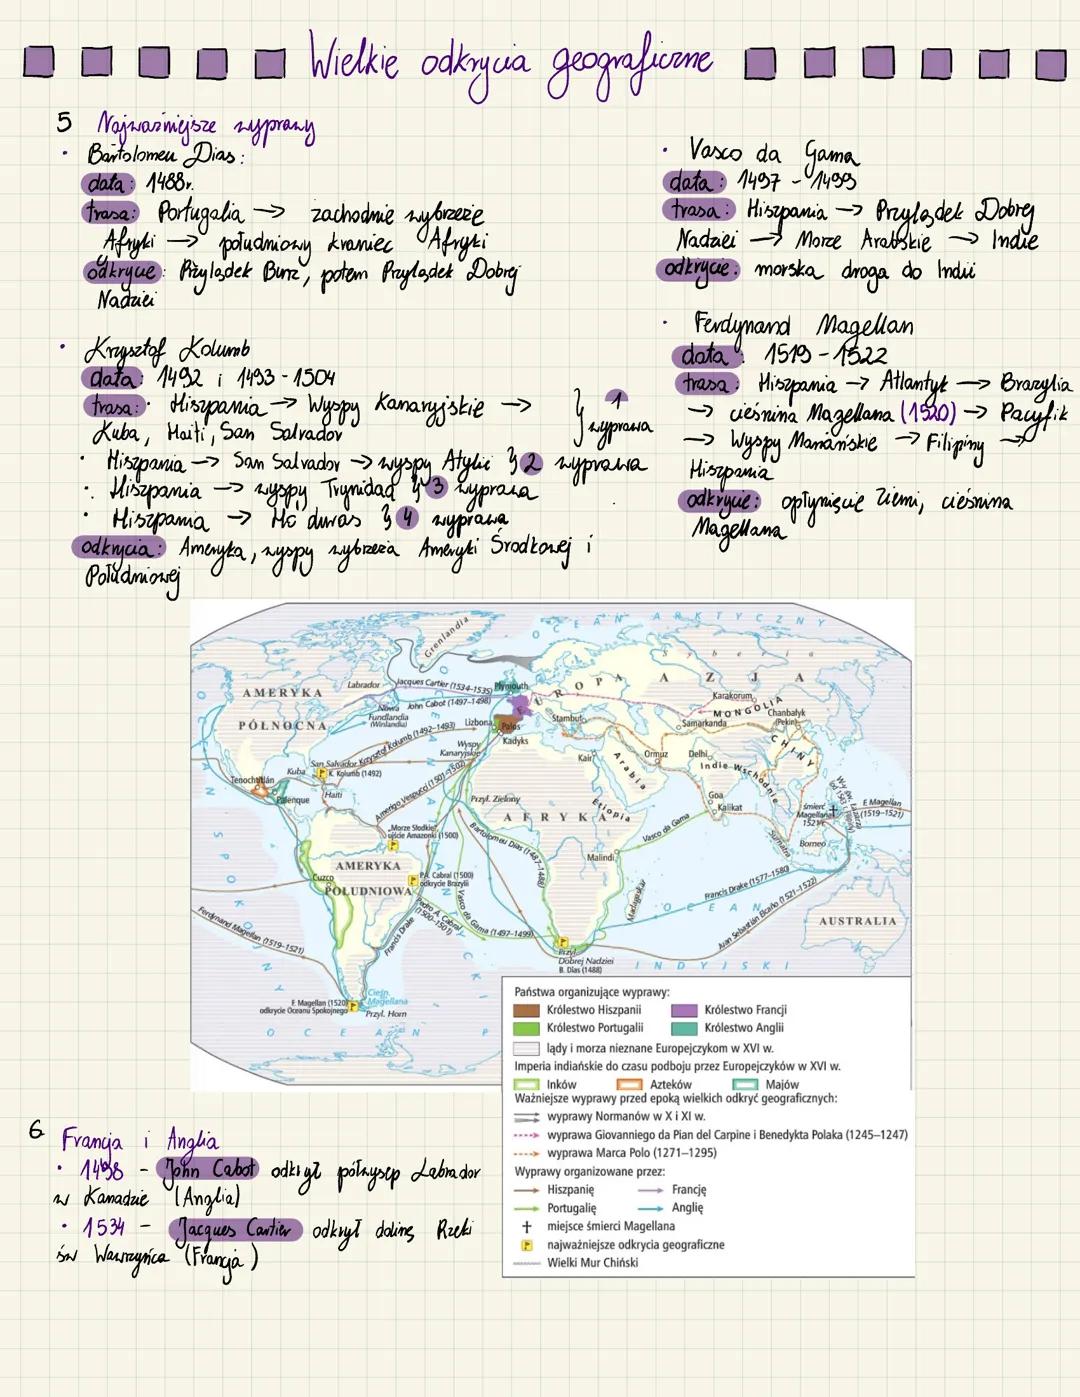 Wielkie odkrycia geograficzne
5 Najważniejsze wyprawy
• Bartolomeu Dias:
data: 1488r.
trasa: Portugalia → zachodnie wybrzeże
Afryki → południowy kraniec Afryki
odkrycie: Przylądek Burz, potem Przylądek Dobrej
Nadziei
• Krzysztof Kolumb
data: 1492 i 1493 - 1504
trasa: • Hiszpania → Wyspy Kanaryjskie →
Kuba, Haiti, San Salvador
} 1
wyprawa
• Hiszpania → San Salvador → wyspy Atylie } 2 wyprawa
• Hiszpania → wyspy Trynidad } 3 wyprawa
• Hiszpania → Honduras } 4 wyprawa
odkrycia: Ameryka, wyspy wybrzeża Ameryki Środkowej i
Południowej
• Vasco da Gama
data: 1497 - 1499
trasa: Hiszpania → Przylądek Dobrej
Nadziei → Morze Arabskie → Indie
odkrycie: morska droga do Indii
• Ferdynand Magellan
data: 1519 - 1522
trasa: Hiszpania → Atlantyk → Brazylia
→ cieśnina Magellana (1520) → Pacyfik
→ Wyspy Mariańskie → Filipiny →
Hiszpania
odkrycie: opłynięcie Ziemi, cieśnina
Magellana
OCEAN ARKTYCZNY
Grenlandia
Syberia
AMERYKA
PÓŁNOCNA
Labrador
Jacques Cartier (1534–1535)
Plymouth
EUROPA
AZJA
Nowa
Fundlandia
(Winlandia)
John Cabot (1497–1498)
Karakorum
MONGOLIA
Chanbałyk
(Pekin)
Lizbona
Palos
Kadyks
Stambuł
Samarkanda
CHINY
San Salvador
Krzysztof Kolumb (1492–1493)
K. Kolumb (1492)
Wyspy
Kanaryjskie
Kair
Arabia
Ormuz
Delhi
Indie Wschodnie
Tenochtitlán
Kuba
Palenque
Haiti
Amerigo Vespucci (1501–1502)
Przyl. Zielony
AFRYKA
Etiopia
Goa
Kalikat
śmierć
Magellana
1521 r.
F. Magellan
(1519–1521)
Morze Słodkie,
ujście Amazonki (1500)
Bartolomeu Dias (1487–1488)
Vasco da Gama
Malindi
Sumatra
Borneo
AMERYKA
POŁUDNIOWA
Cuzco
P.A. Cabral (1500)
odkrycie Brazylii
Pedro A. Cabral
(1500–1501)
Vasco da Gama (1497–1499)
Madagaskar
Francis Drake (1577–1580)
Juan Sebastián Elcano (1521–1522)
OCEAN
INDYJSKI
AUSTRALIA
Ferdynand Magellan (1519–1521)
Francis Drake
Przyl.
Dobrej Nadziei
B. Dias (1488)
F. Magellan (1520)
odkrycie Oceanu Spokojnego
Cieśn.
Magellana
Przyl. Horn
OCEAN
Państwa organizujące wyprawy:
Królestwo Hiszpanii
Królestwo Francji
Królestwo Portugalii
Królestwo Anglii
lądy i morza nieznane Europejczykom w XVI w.
Imperia indiańskie do czasu podboju przez Europejczyków w XVI w.
Inków
Azteków
Majów
Ważniejsze wyprawy przed epoką wielkich odkryć geograficznych:
wyprawy Normanów w X i XI w.
wyprawa Giovanniego da Pian del Carpine i Benedykta Polaka (1245–1247)
wyprawa Marca Polo (1271–1295)
Wyprawy organizowane przez:
Hiszpanię
Francję
Portugalię
Anglię
miejsce śmierci Magellana
najważniejsze odkrycia geograficzne
Wielki Mur Chiński
6 Francja i Anglia
• 1498 - John Cabot odkrył półwysep Labrador
w Kanadzie (Anglia)
• 1534 - Jacques Cartier odkrył dolinę Rzeki
św Wawrzyńca (Francja)